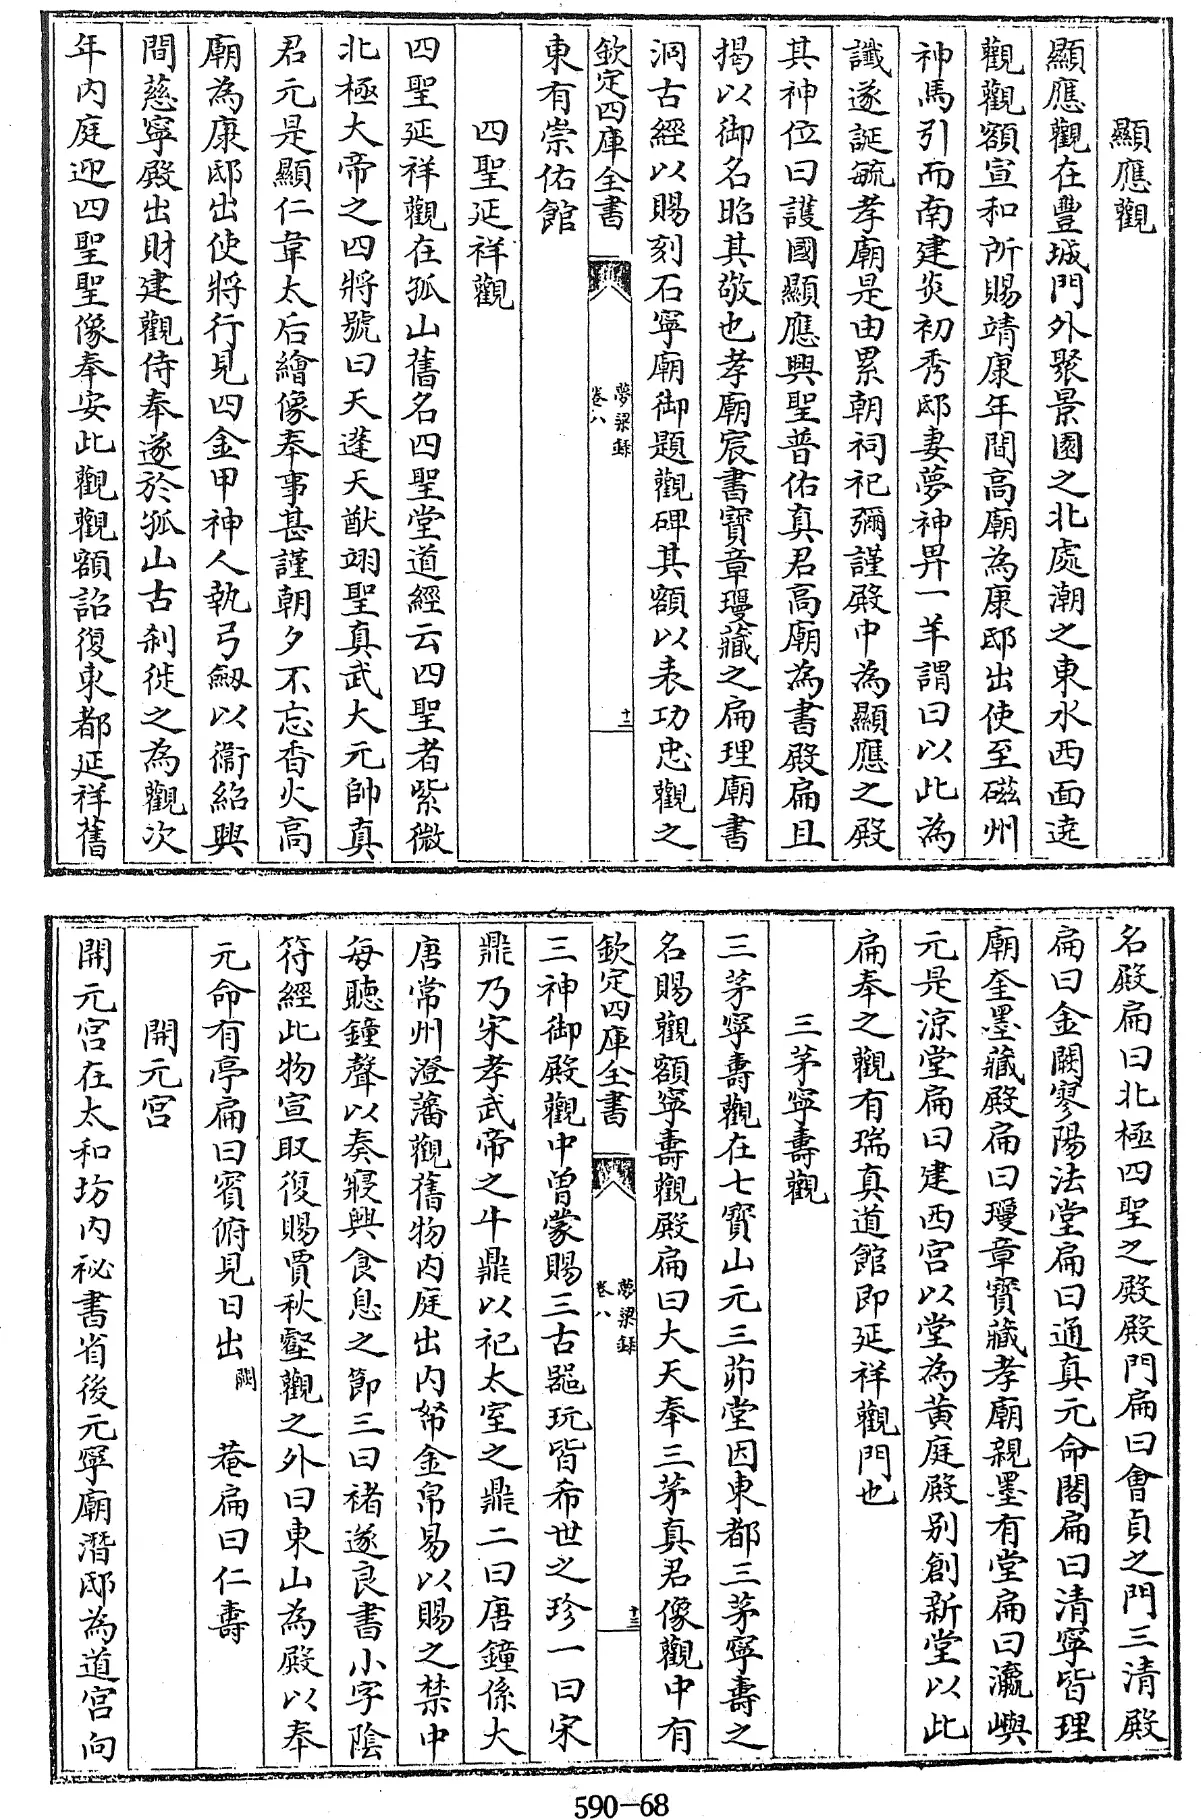 顯應觀
顯應觀在豐城門外聚景園之北處潮之東水西面遶
觀觀額宣和所賜靖康年間高廟為康邸出使至磁州
神馬引而南建炎初秀邸妻夢神畀一羊謂曰以此為
讖遂誕毓孝廟是由累朝祠祀彌謹殿中為顯應之殿
其神位曰護國顯應興聖普佑真君高廟為書殿扁且
揭以御名昭其敬也孝廟宸書寶章璦藏之扁理廟書
洞古經以賜刻石寧廟御題觀碑其額以表功忠觀之
欽定四庫全書
夢梁録
卷八
十二
東有崇佑館
四聖延祥觀
四聖延祥觀在孤山舊名四聖堂道經云四聖者紫微
北極大帝之四將號曰天蓬天猷翊聖真武大元帥真
君元是顯仁韋太后繪像奉事甚謹朝夕不忘香火高
廟為康邸出使將行見四金甲神人執弓劔以衞紹興
間慈寧殿出財建觀侍奉遂於孤山古刹徙之為觀次
年内庭迎四聖聖像奉安此觀觀額詔復東都延祥舊
名殿扁曰北極四聖之殿殿門扁曰會貞之門三清殿
扁曰金闕寥陽法堂扁曰通真元命閣扁曰清寧皆理
廟奎墨藏殿扁曰璦章寶藏孝廟親墨有堂扁曰瀛嶼
元是涼堂扁曰建西宫以堂為黄庭殿别創新堂以此
扁奉之觀有瑞真道館即延祥觀門也
三茅寧夀觀
三茅寧夀觀在七寶山元三茆堂因東都三茅寧夀之
名賜觀額寧夀觀殿扁曰大天奉三茅真君像觀中有
欽定四庫全書
夢梁録
卷八
十三
三神御殿觀中曽蒙賜三古器玩皆希世之珍一曰宋
鼎乃宋孝武帝之牛鼎以祀太室之鼎二曰唐鐘係大
唐常州澄藩觀舊物内庭出内帑金帛易以賜之禁中
每聽鐘聲以奏寢興食息之節三曰褚遂良書小字陰
符經此物宣取復賜賈秋壑觀之外曰東山為殿以奉
元命有亭扁曰賓俯見日出闕 菴扁曰仁夀
開元宫
開元宫在太和坊内秘書省後元寧廟潛邸為道宫向
590-68